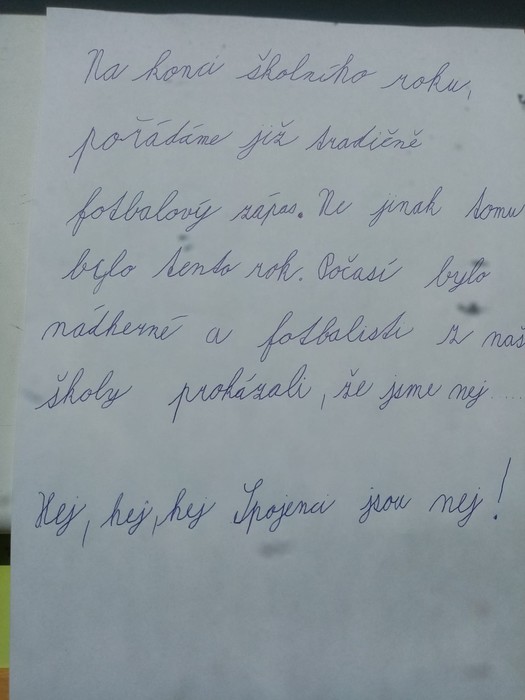 Na konci školního roku,
pořádáme již tradičně
fotbalový zápas. Ne jinak tomu
bylo tento rok. Počasí bylo
nádherné a fotbalisti z naš
školy prokázali, že jsme nej.....
Hej, hej, hej Spojenci jsou nej!